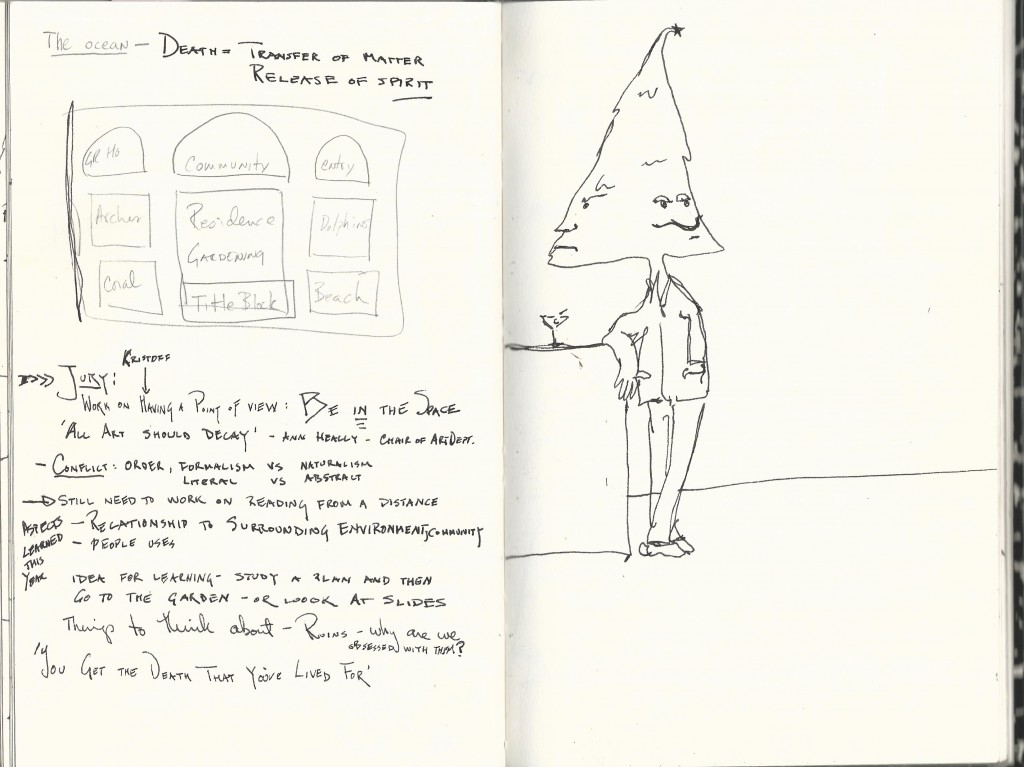 The ocean – Death = Transfer of matter
Release of spirit
GR Ho
Community
entry
Archer
Residence
Gardening
Dolphins
Coral
Title Block
Beach
Kristoff
Jury:
Work on Having a Point of view: Be in the Space
'All Art should decay' - Ann Heally - Chair of Art Dept.
- Conflict: order, formalism vs naturalism
literal vs abstract
Still need to work on reading from a distance
Aspects learned this year
- Relationship to surrounding environment, community
- People uses
Idea for learning - study a plan and then
go to the garden - or loook at slides
Things to think about - Ruins - why are we
obsessed with them?
'You Get the Death That You've Lived For'